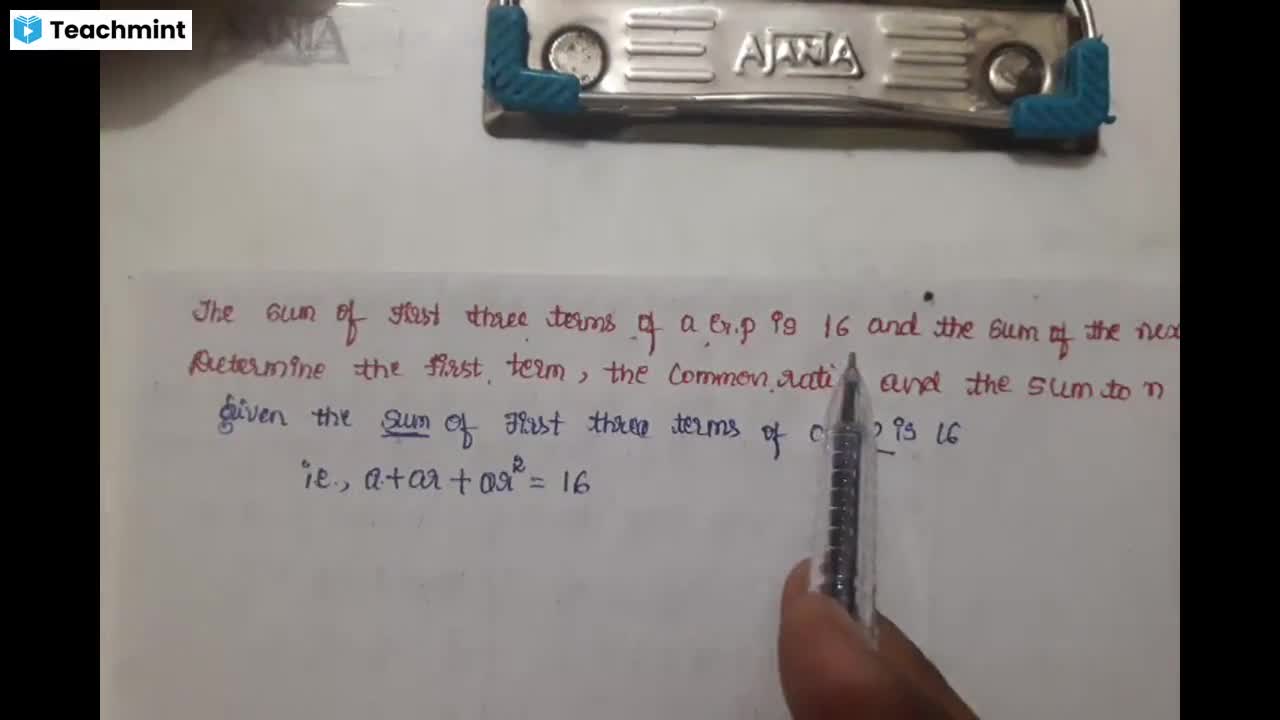 Teachmint
AJANTA
The sum of first three terms of a G.P is 16 and the sum of the nex
Determine the first term, the common rati and the sum to n
Given the sum of first three terms of is 16
i.e., a+ar+ar² = 16